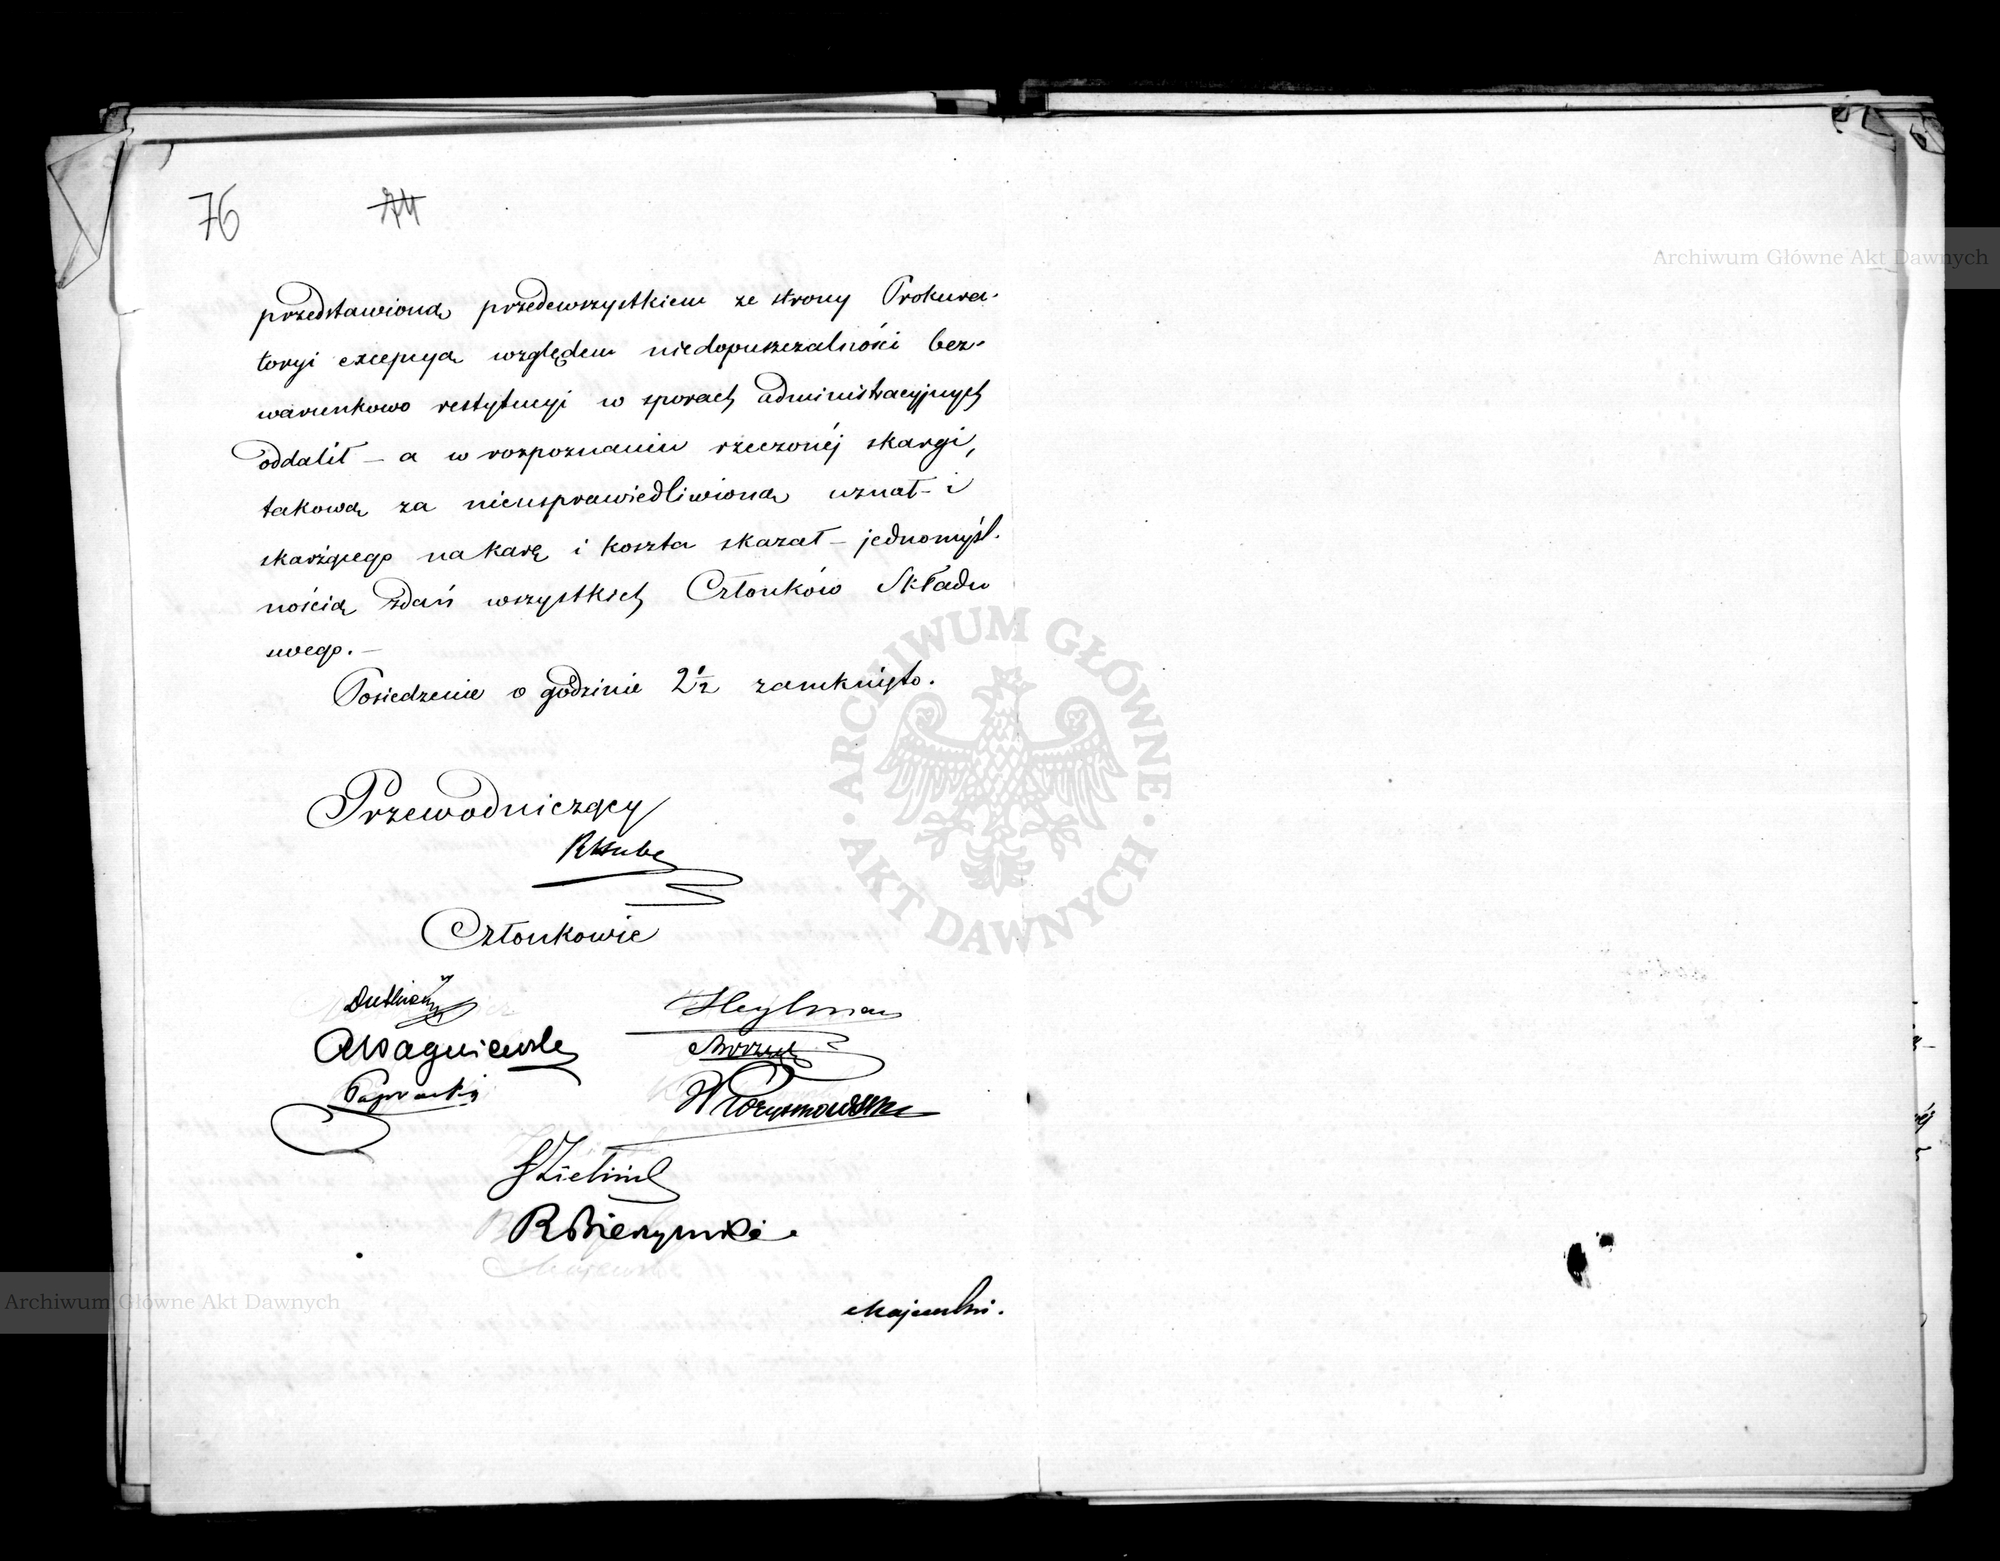 76
74
przedstawioną przedewszystkiem ze strony Prokura-
toryi excepcyą względem niedopuszczalności bez-
warunkowo restytucyi w sporach administracyjnych
oddalił – a w rozpoznaniu rzeczonéj skargi,
takową za nieusprawiedliwioną uznał – i
skarżącego na karę i koszta skazał – jednomyśl-
nością zdań wszystkich Członków Składu
swego. –
Posiedzenie o godzinie 2 1/2 zamknięto.
Przewodniczący
RHube
Członkowie
Heylman
Paprocki
RBierzyński
Majewski.
Archiwum Główne Akt Dawnych
ARCHIWUM GŁÓWNE
AKT DAWNYCH
Archiwum Główne Akt Dawnych